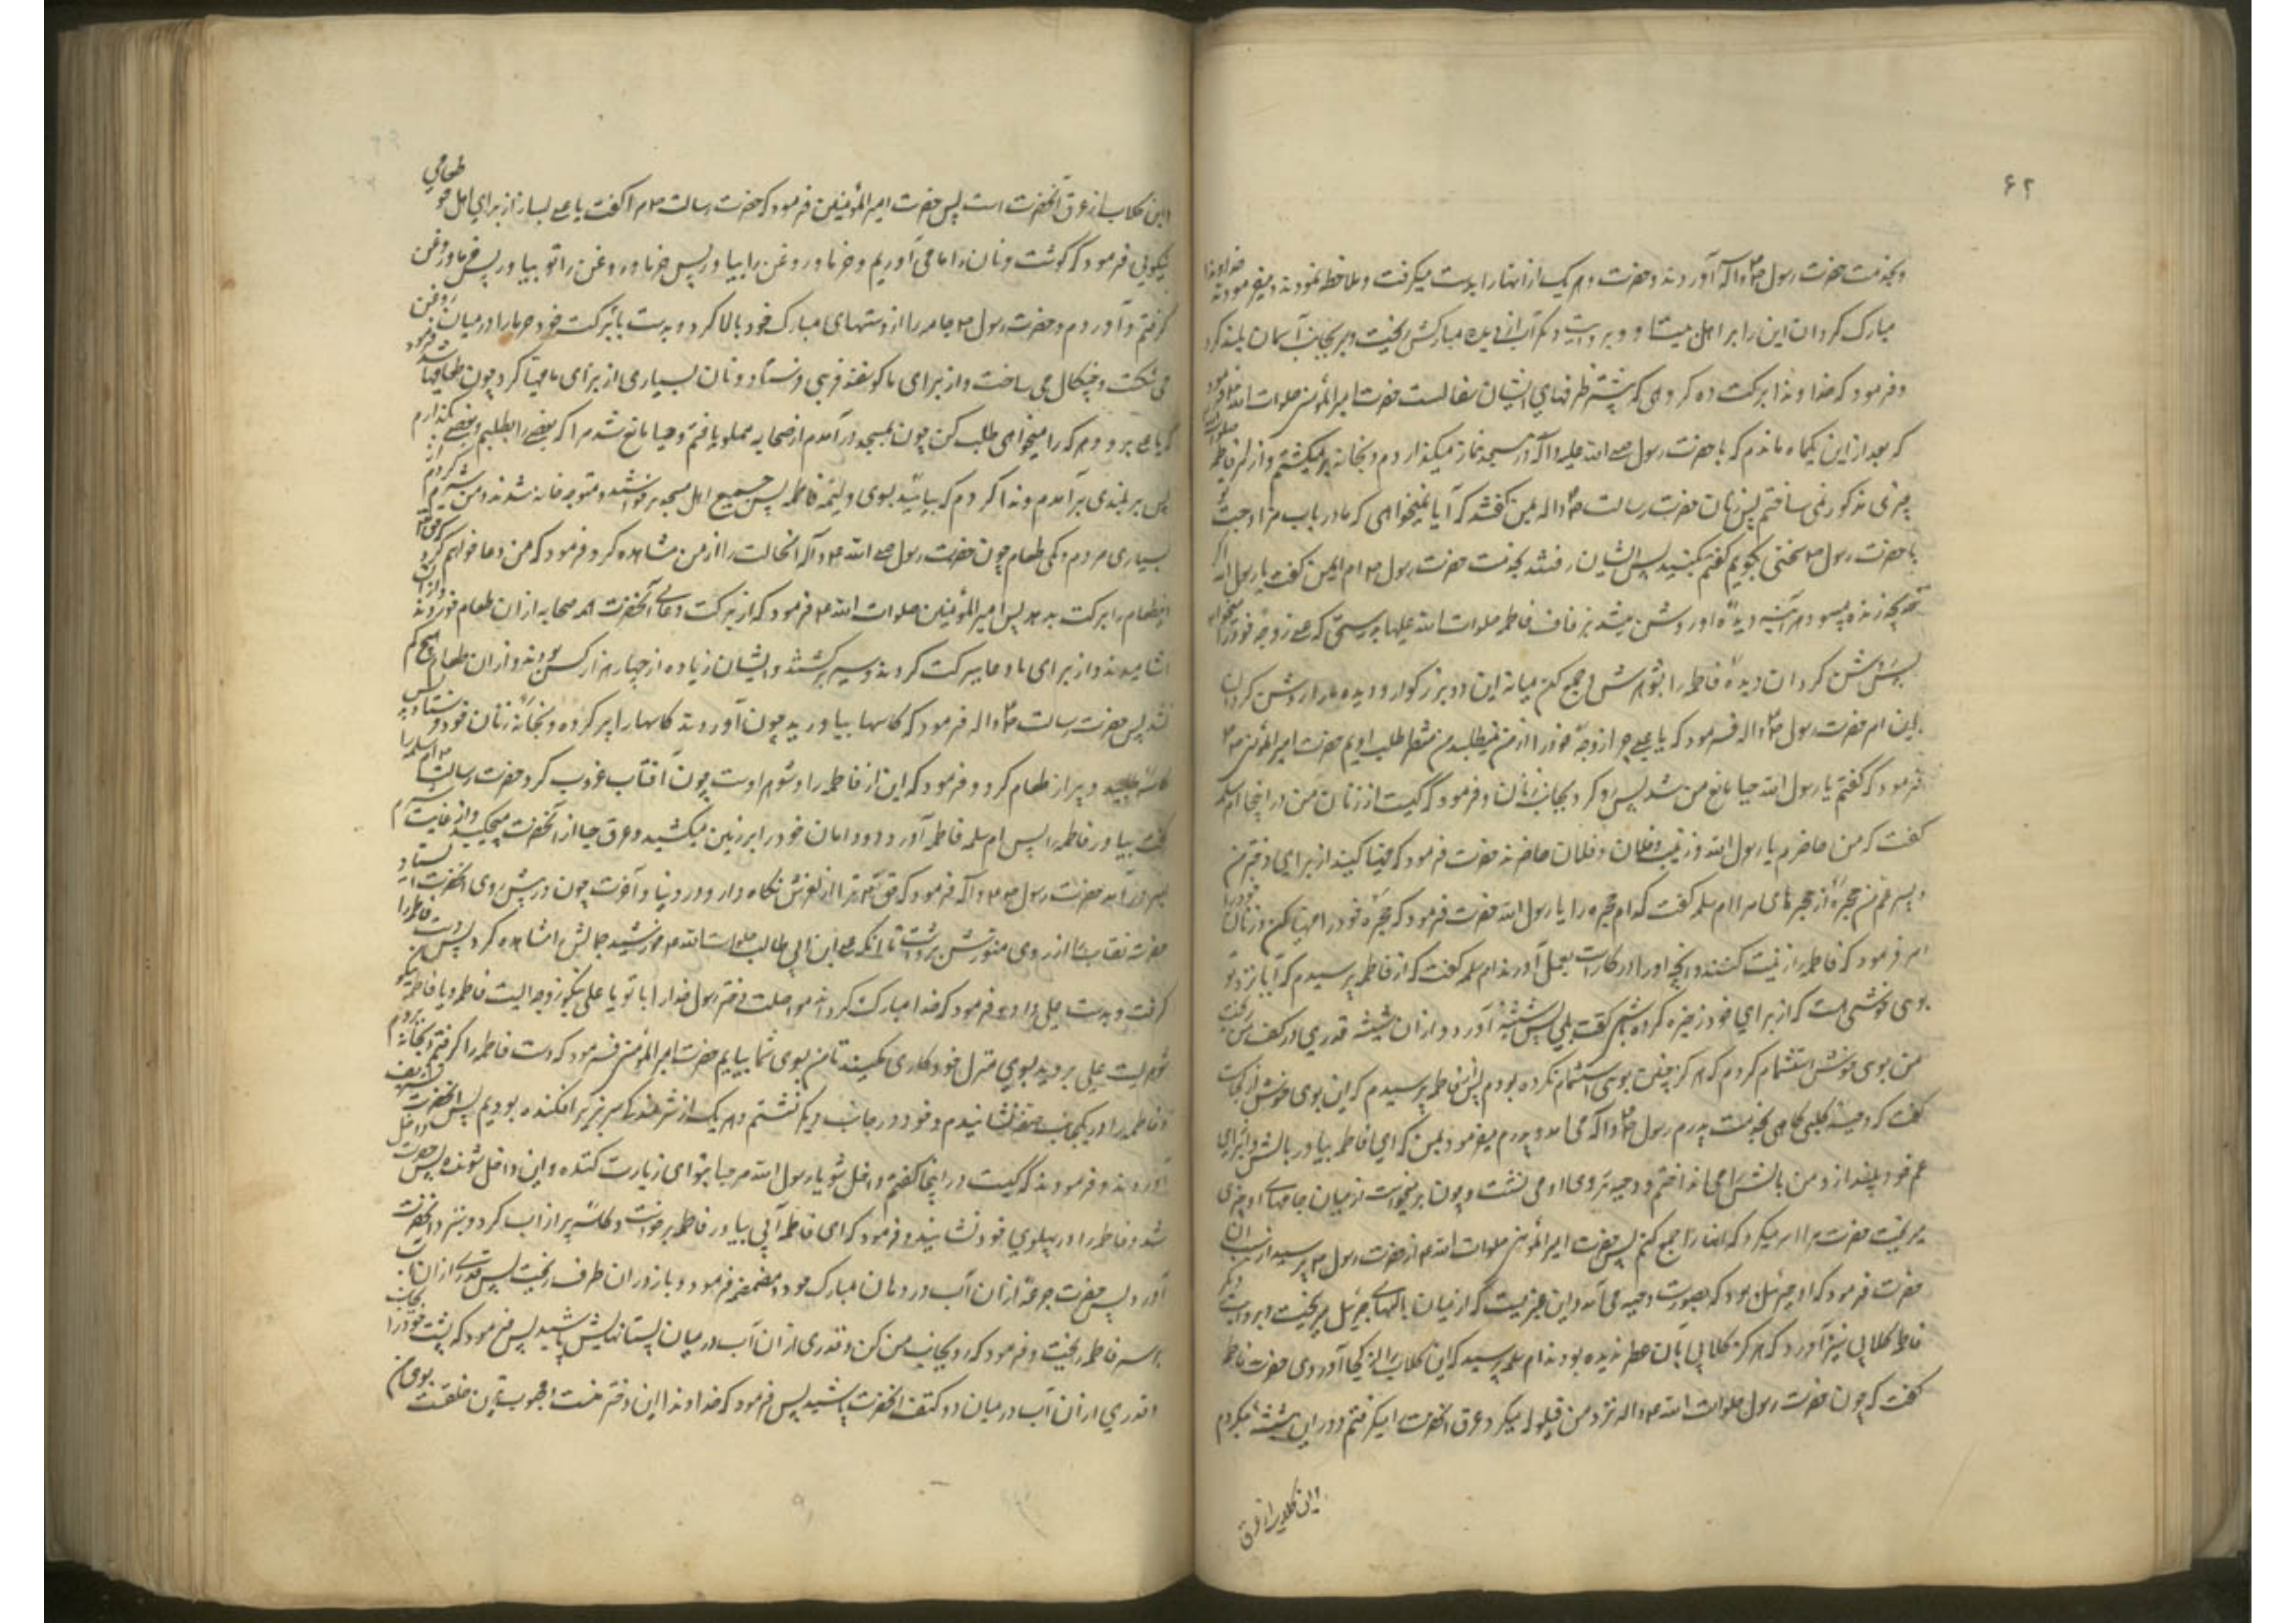 ۶۲
و بخدمت حضرت رسول ص واله آوردند و حضرت و هر یک از انها را بدست میکرفت و ملاحظه نمودند و میفرمودند خداوندا
مبارک کردان این را بر اهل بیت ما و بروایت دیگر آب از دیده مبارکش ریخت و سر بجانب آسمان بلند کرد
و فرمود که خداوندا برکت ده کروهی که بیشتر ظرفهای ایشان سفالست حضرت امیر المؤمنین صلوات الله علیه فرمود
که بعد از این یکماه ماندم که با حضرت رسول صلی الله علیه واله در مسجد نماز میکذاردم و بخانه بر میکشتم و از امر فاطمه صلوات
چیزی مذکور نمی ساختم پس زنان حضرت رسالت ص واله بمن کفتند که آیا نمیخواهی که ما در باب مزاوجت تو
با حضرت رسول ص سخنی بکوییم کفتم بکنید پس ایشان رفتند بخدمت حضرت رسول ص ام ایمن کفت یا رسول الله اکر
خدیجه زنده میبود هر آینه دیده او روشن میشد بزفاف فاطمه صلوات الله علیها بدرستی که علی زوجه خود را میخواهد
پس روشن کردان دیده فاطمه را بشوهرش و جمع کن میانه این دو بزرکوار و دیده ما را روشن کردان
باین امر حضرت رسول ص واله فرمود که یا علی چرا زوجه خود را از من نمیطلبد من منتظر طلب اویم حضرت امیر المؤمنین ع
فرمود که کفتم یا رسول الله حیا مانع من شد پس رو کرد بجانب زنان و فرمود که کیست از زنان من در اینجا ام سلمه
کفت که من حاضرم یا رسول الله و زینب و فلان و فلان حاضرند حضرت فرمود که مهیا کنید از برای دختر من
و پسر عم من حجره از حجرهای مرا ام سلمه کفت کدام حجره را یا رسول الله حضرت فرمود که حجره خود را مهیا کن و زنان خود را
امر فرمود که فاطمه را زینت کنند و انچه او را در کار است بعمل آورند ام سلمه کفت که از فاطمه پرسیدم که آیا نزد تو
بوی خوشی هست که از برای خود ذخیره کرده باشی کفت بلی پس شیشه آورد و از ان شیشه قدری در کف من ریخت
من بوی خوش استشمام کردم که هر کز چنین بوی استشمام نکرده بودم پس از فاطمه پرسیدم که این بوی خوش از کجاست
کفت که دحیه کلبی کاهی بخدمت پدرم رسول ص واله می امد و پدرم میفرمود بمن که ای فاطمه بیاور بالش و از برای
عم خود بینداز و من بالش را می انداختم و دحیه بر روی او می نشست و چون بر میخواست از میان جامهای او چیزی
میریخت حضرت مرا امر میکرد که انها را جمع کنم پس حضرت امیر المؤمنین صلوات الله علیه از حضرت رسول ص پرسید از سبب ان
حضرت فرمود که او جبرئیل بود که بصورت دحیه می آمد و این عنبریست که از میان بالهای جبرئیل میریخت و بروایت دیگر
فاطمه کلابی نیز آورد که هر کز کلابی بان عطر ندیده بودند ام سلمه پرسید که این کلاب را از کجا آوردی حضرت فاطمه
کفت که چون حضرت رسول صلوات الله علیه واله نزد من قیلوله میکرد عرق انحضرت را میکرفتم و در این شیشه میکردم
این کلاب از عرق
این کلاب از عرق آنحضرت است پس حضرت امیر المؤمنین فرمود که حضرت رسالت ص مرا کفت یا علی بساز از برای اهل خود طعامی
نیکویی فرمود که کوشت و نان را ما می آوریم و خرما و روغن را بیاور پس خرما و روغن را تو بیاور پس خرما و روغن
کرفتم و آوردم و حضرت رسول ص جامه را از دستهای مبارک خود بالا کرد و بدست با برکت خود خرما را در میان روغن
می شکست و چنکال می ساخت و از برای ما کوسفند فربهی فرستاد و نان بسیاری از برای ما مهیا کرد چون طعام مهیا شد فرمود
که یا علی برو و هر که را میخواهی طلب کن چون بمسجد در آمدم از صحابه مملو یافتم و حیا مانع شد مرا که بعضی را بطلبم و بعضی را بکذارم
پس بر بلندی بر آمدم و ندا کردم که بیائید بسوی ولیمه فاطمه پس جمیع اهل مسجد برخواستند و متوجه خانه شدند و من شرم کردم از
بسیاری مردم و کمی طعام چون حضرت رسول صلی الله ع واله انحالت را از من مشاهده کرد فرمود که من دعا خواهم کرد که حق تعالی
این طعام را برکت بدهد پس امیر المؤمنین صلوات الله علیه فرمود که از برکت دعای آنحضرت همه صحابه از ان طعام خوردند و از ان
آشامیدند و از برای ما دعا ببرکت کردند و سیر برکشتند و ایشان زیاده از چهار هزار کس بودند و از ان طعام هیچ کم
نشد پس حضرت رسالت ص واله فرمود که کاسها بیاورید چون آوردند کاسها را پر کرده و بخانه زنان خود فرستاد پس
کاسه طلبید و پر از طعام کرد و فرمود که این از فاطمه را و شوهر اوست چون آفتاب غروب کرد حضرت رسالت ص ام سلمه را
کفت بیاور فاطمه را پس ام سلمه فاطمه آورد و دامان خود را بر زمین میکشید و عرق حیا از آنحضرت میچکید و از غایت شرم
بسر در آمد حضرت رسول ص واله فرمود که حق تعالی ترا از لغزش نکاه دارد در دنیا و آخرت چون در پیش روی آنحضرت ایستاد
حضرت نقاب را از روی منورش برداشت تا آنکه علی ابن ابی طالب صلوات الله علیه خورشید جمالش را مشاهده کرد پس دست فاطمه را
کرفت و بدست علی داد و فرمود که خدا مبارک کرداند مواصلت دختر رسول خدا را با تو یا علی نیکو زوجه ایست فاطمه و یا فاطمه نیکو
شوهریست علی بروید بسوی منزل خود و کاری مکنید تا من بسوی شما بیایم حضرت امیر المؤمنین فرمود که دست فاطمه را کرفتم و بخانه بردم
و فاطمه را در یکجانب صفه نشانیدم و خود در جانب دیکر نشستم و هر یک از شرمندکی سر بزیر افکنده بودیم پس آنحضرت تشریف
آوردند و فرمودند که کیست در اینجا کفتم داخل شو یا رسول الله مرحبا بتو ای زیارت کننده و این داخل شونده پس حضرت داخل
شد و فاطمه را در پهلوی خود نشانید و فرمود که ای فاطمه آبی بیاور فاطمه برخواست و کاسه پر از آب کرد و بنزد آنحضرت
آورد پس حضرت جرعه از ان آب در دهان مبارک خود و مضمضه فرمود و باز در ان ظرف ریخت پس قدری از ان آب
بر سر فاطمه ریخت و فرمود که رو بجانب من کن و قدری از ان آب در میان پستانهایش پاشید پس فرمود که پشت خود را بجانب
و قدری از ان آب در میان دو کتف انحضرت پاشید پس فرمود که خداوندا این دختر منست و محبوب ترین خلقست بسوی من